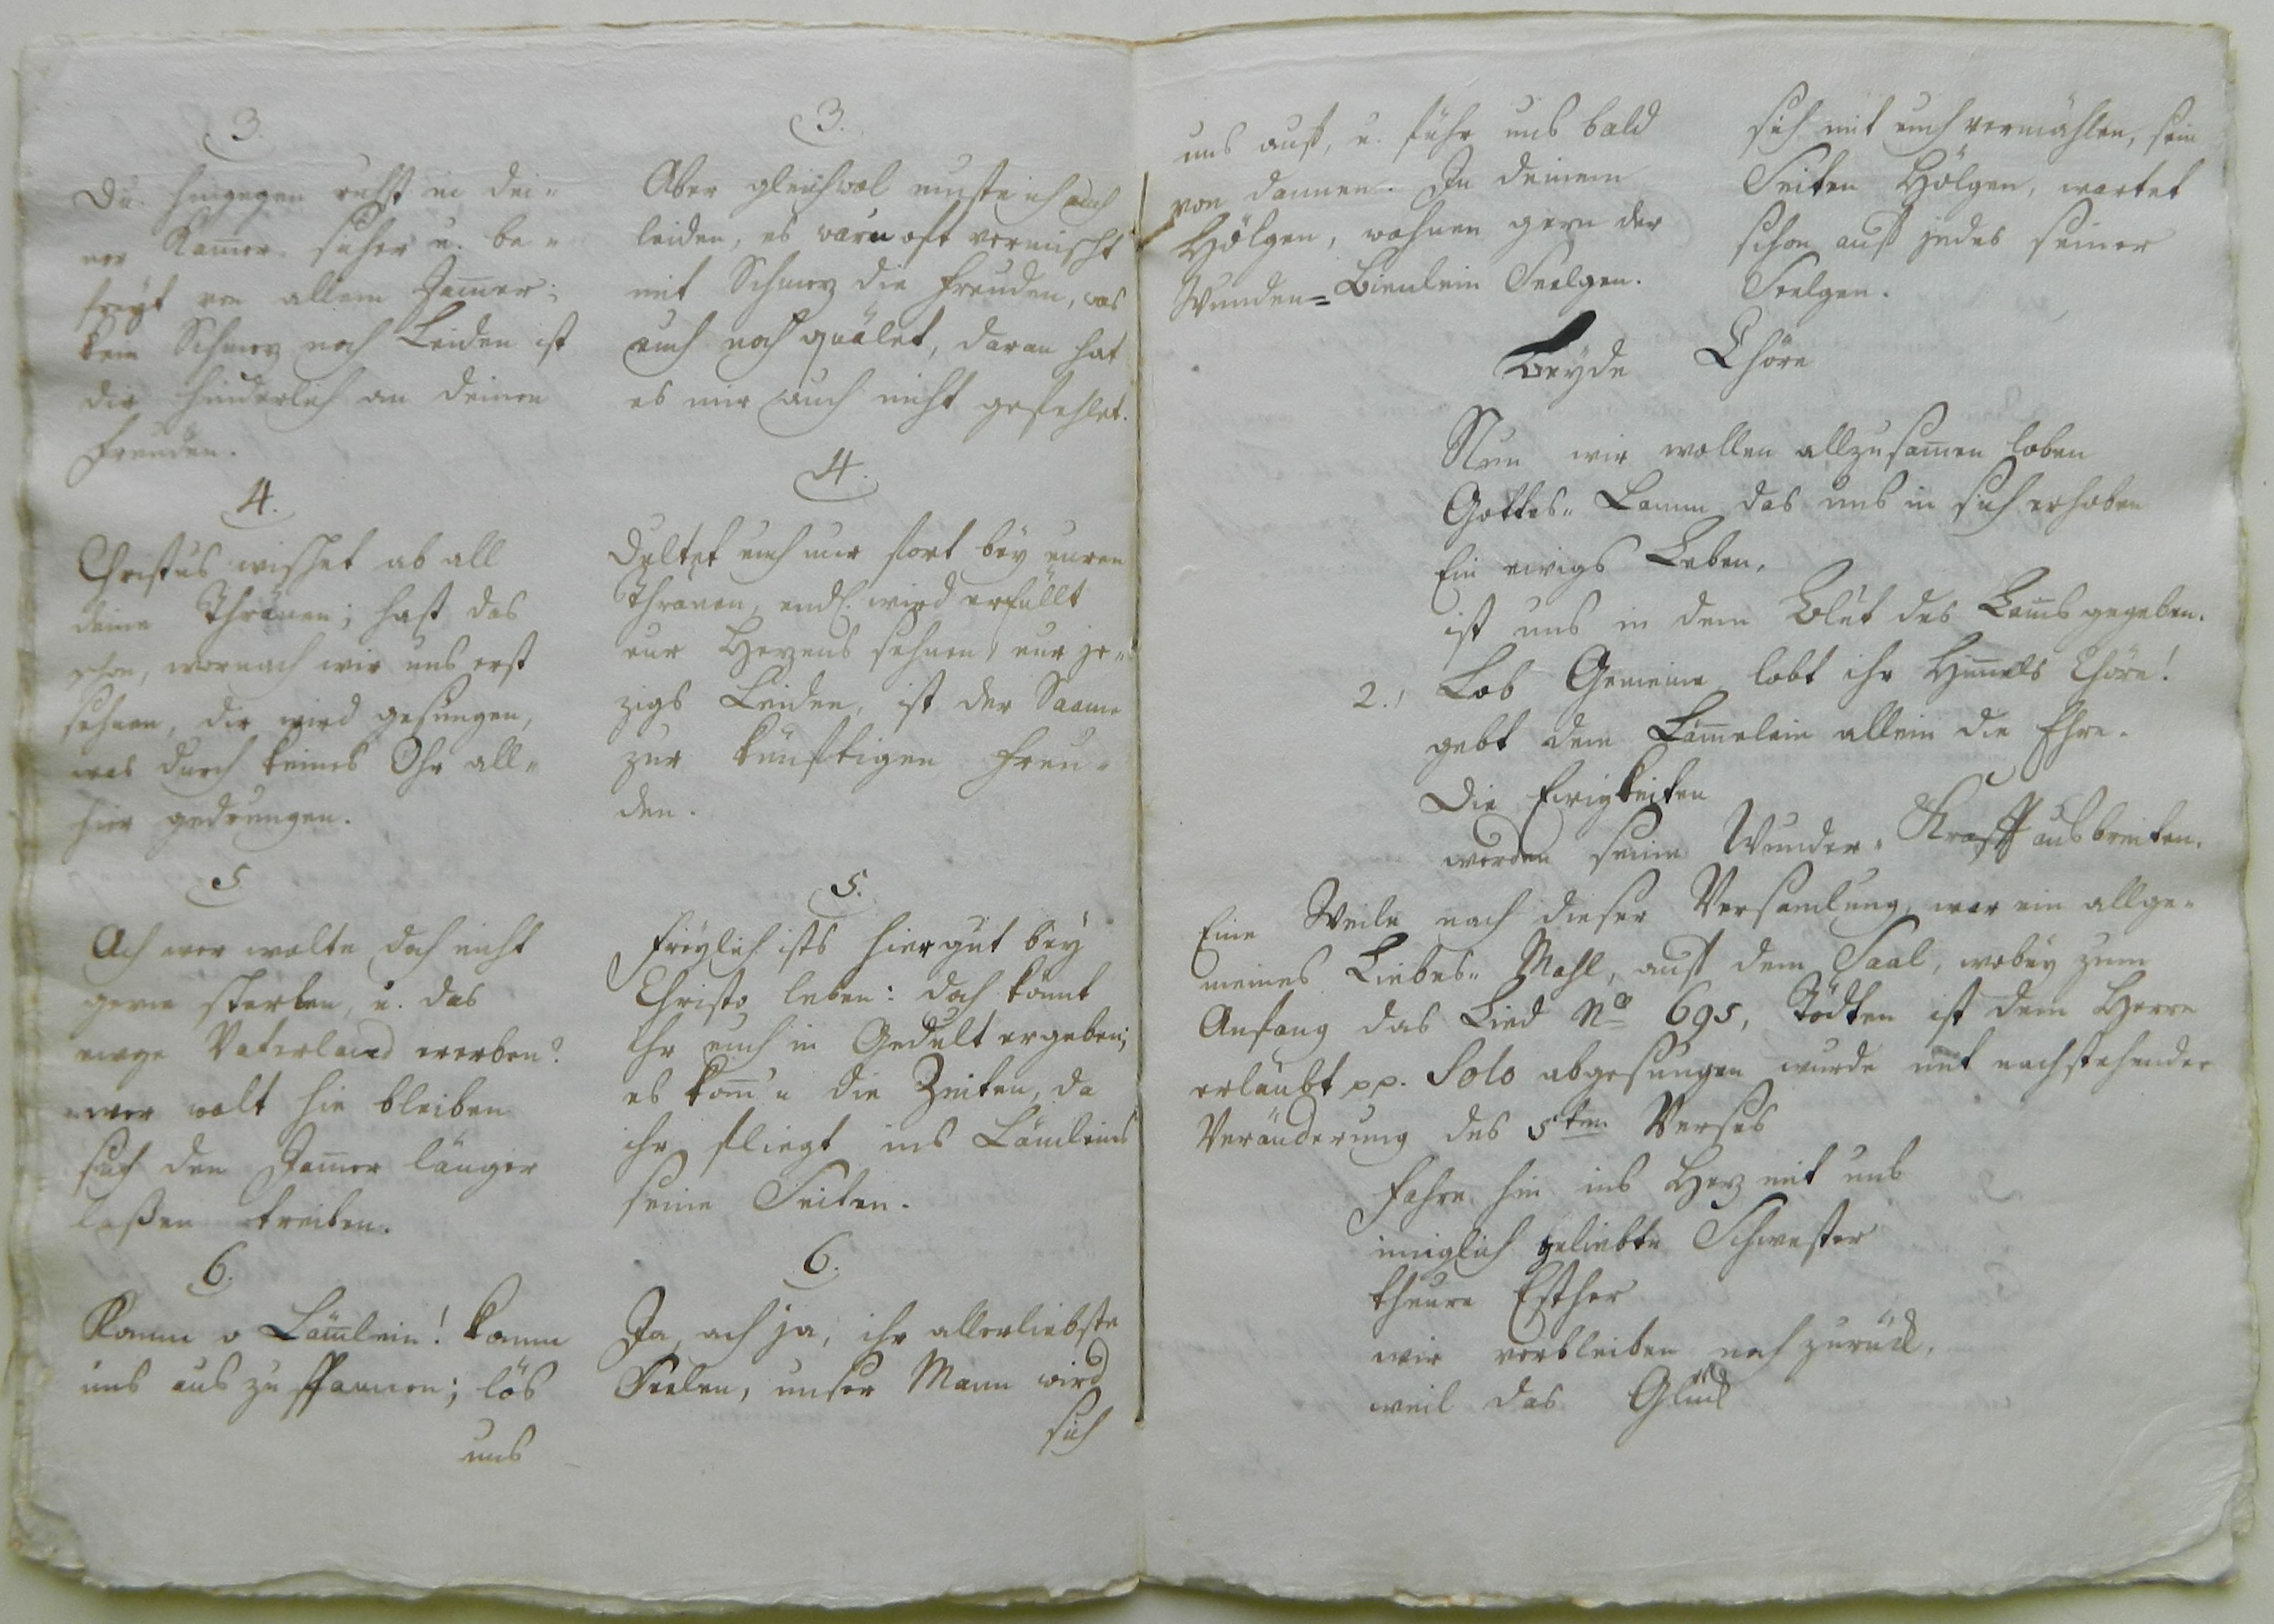 3.
Du hingegen ruhst in dei-
ner Kam̄er sicher u. be-
freyt von allem Jam̄er;
kein Schmerz noch Leiden ist
dir hinderlich an deinen
Freuden.
4.
Christus wischet ab all
deine Thränen; hast das
schon, wornach wir uns erst
sehnen, dir wird gesungen,
was durch keines Ohr all-
hier gedrungen.
5
Ach wer wolte doch nicht
gerne sterben, u. das
ewge Vaterland ererben?
wer wolt hie bleiben
sich den Jam̄er länger
laßen treiben.
6.
Komm o Läm̄lein! komm
uns aus zu spannen; lös
uns
3.
Aber gleichwol muste ich auch
leiden, es war'n oft vermischt
mit Schmerz die Freuden, was
euch noch quälet, daran hat
es mir auch nicht gefehlet.
4.
Deltet euch nur fort bey euren
Thränen, endl. wird erfüllt
eur Herzens sehnen, eur je-
zigs Leiden, ist der Saame
zur künftigen Freu-
den.
5.
Freylich ists hier gut bey
Christo leben: doch könnt
ihr euch in Gedult ergeben;
es kom̄'n die Zeiten, da
ihr fliegt ins Läm̄leins
seine Seiten.
6.
Ja, ach ja, ihr allerliebste
Seelen, unser Mann wird
sich
uns auf, u. führ uns bald
von dannen. In deinem
Hölgen, wohnen gern der
Wunden= Bienlein Seelgen.
sich mit euch vermählen, sein
Seiten Hölgen, wartet
schon auf jedes seiner
Seelgen.
Beyde Chöre
Nun wir wollen allzusam̄en loben
Gottes- Lamm das uns in sich erhoben
Ein ewigs Leben,
ist uns in dem Blut des Lam̄s gegeben.
2., Lob Gemeine lobt ihr Him̄els Chöre!
gebt dem Läm̄elein allein die Ehre.
Die Ewigkeiten
werden seine Wunder- Krafft ausbreiten.
Eine Weile nach dieser Versam̄lung, war ein allge-
meines Liebes- Mahl, auf dem Saal, wobey zum
Anfang das Lied No 695, Tödten ist dem Herrn
erlaubt pp. Solo abgesungen wurde mit nachstehender
Veränderung des 5ten Verses
Fahre hin ins Herz mit uns
inniglich geliebte Schwester
theure Esther
wir verbleiben noch zurück,
weil das Glück